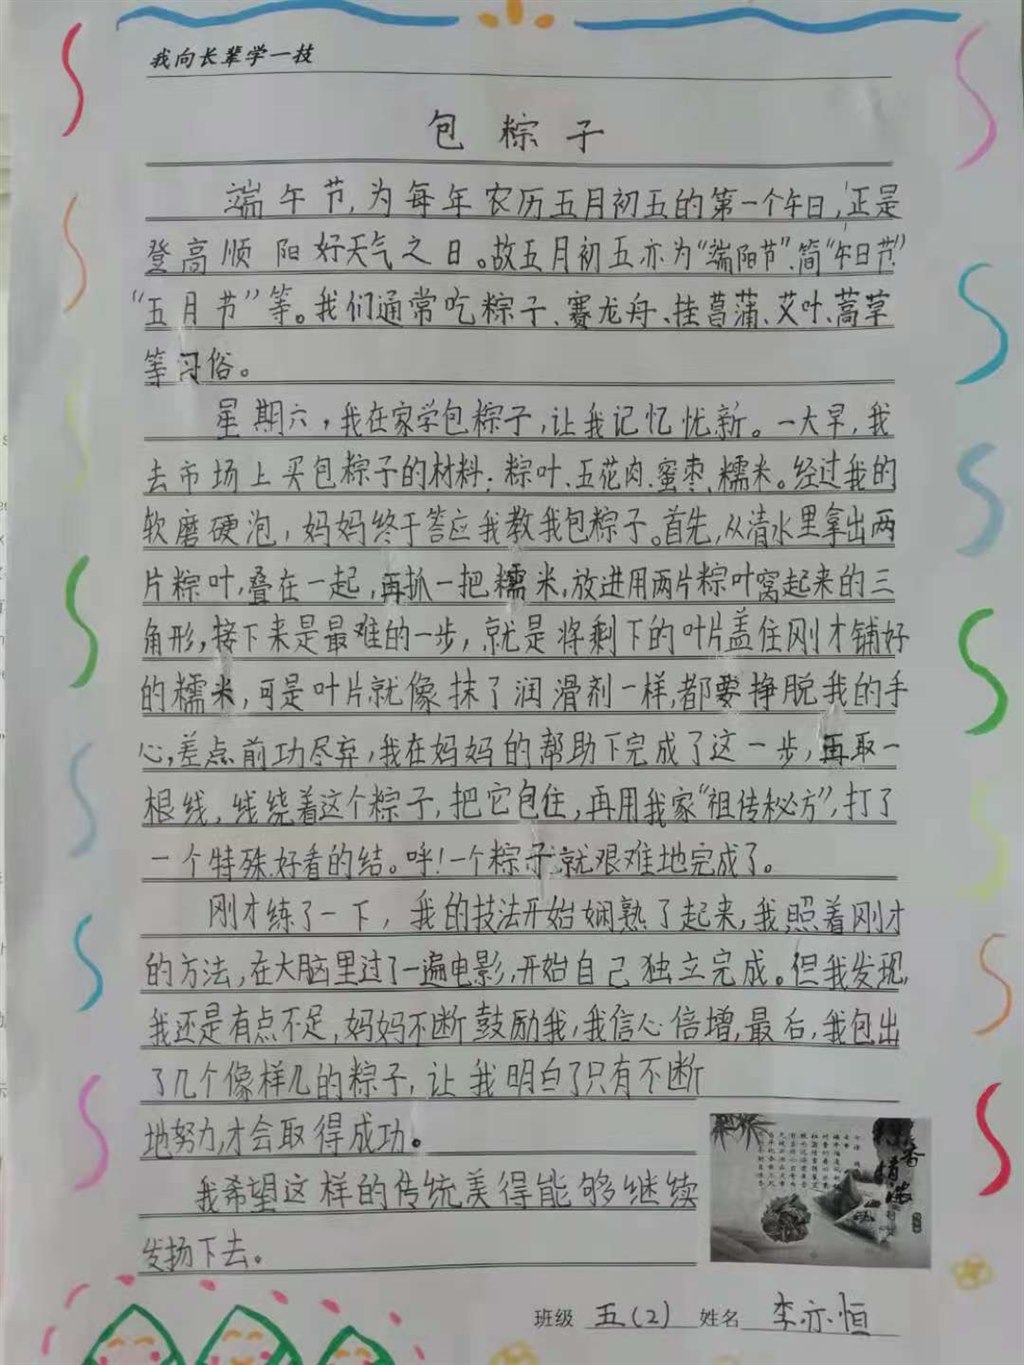 我向长辈学一技
包粽子
端午节,为每年农历五月初五的第一个午日,正是
登高顺阳好天气之日。故五月初五亦为“端阳节”、简“午日节”
“五月节”等。我们通常吃粽子、赛龙舟、挂菖蒲、艾叶、蒿草
等习俗。
星期六,我在家学包粽子,让我记忆忧新。一大早,我
去市场上买包粽子的材料:粽叶、五花肉、蜜枣、糯米。经过我的
软磨硬泡,妈妈终于答应我教我包粽子。首先,从清水里拿出两
片粽叶,叠在一起,再抓一把糯米,放进用两片粽叶窝起来的三
角形,接下来是最难的一步,就是将剩下的叶片盖住刚才铺好
的糯米,可是叶片就像抹了润滑剂一样,都要挣脱我的手
心,差点前功尽弃,我在妈妈的帮助下完成了这一步,再取一
根线,线绕着这个粽子,把它包住,再用我家“祖传秘方”,打了
一个特殊好看的结。呼!一个粽子就艰难地完成了。
刚才练了一下,我的技法开始娴熟了起来,我照着刚才
的方法,在大脑里过了一遍电影,开始自己独立完成。但我发现,
我还是有点不足,妈妈不断鼓励我,我信心倍增,最后,我包出
了几个像样儿的粽子,让我明白了只有不断
地努力,才会取得成功。
我希望这样的传统美得能够继续
发扬下去。
班级 五(2) 姓名 李亦恒